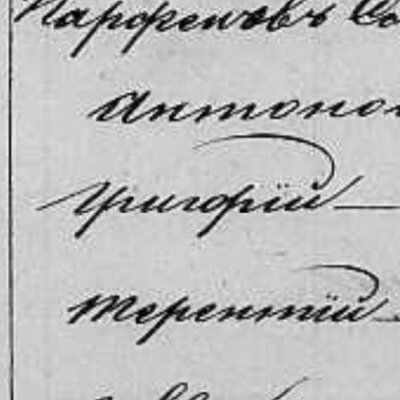 Парфеновъ
Антоно
Григорій
Терентій